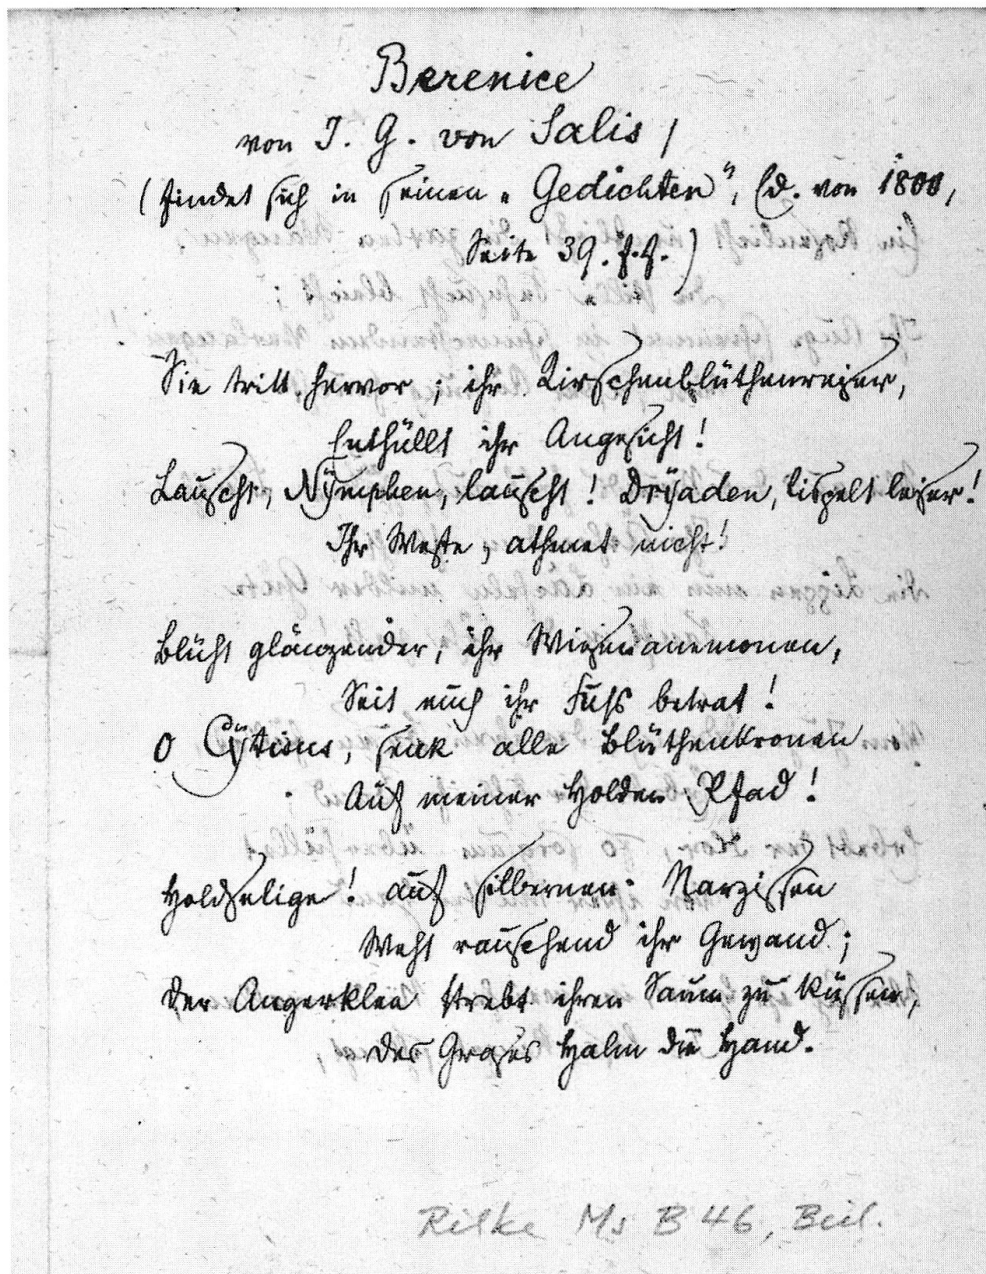 Berenice
von J. G. von Salis /
(findet sich in seinen „Gedichten", Ed. von 1800,
Seite 39. f.f.)
Sie tritt hervor; ihr Kirschenblüthenreiser,
Enthüllt ihr Angesicht!
Lauscht, Nymphen, lauscht! Dryaden, lispelt leiser!
Ihr Weste, athmet nicht!
Blüht glänzender, ihr Wiesenanemonen,
Seit euch ihr Fuss betrat!
O Cytisus, senk alle Blüthenkronen
Auf meiner Holden Pfad!
Holdselige! auf silbernen Narzissen
Weht rauschend ihr Gewand;
Der Angerklee strebt ihren Saum zu küssen,
Des Grases Halm die Hand.
Rilke Ms B 46, Beil.